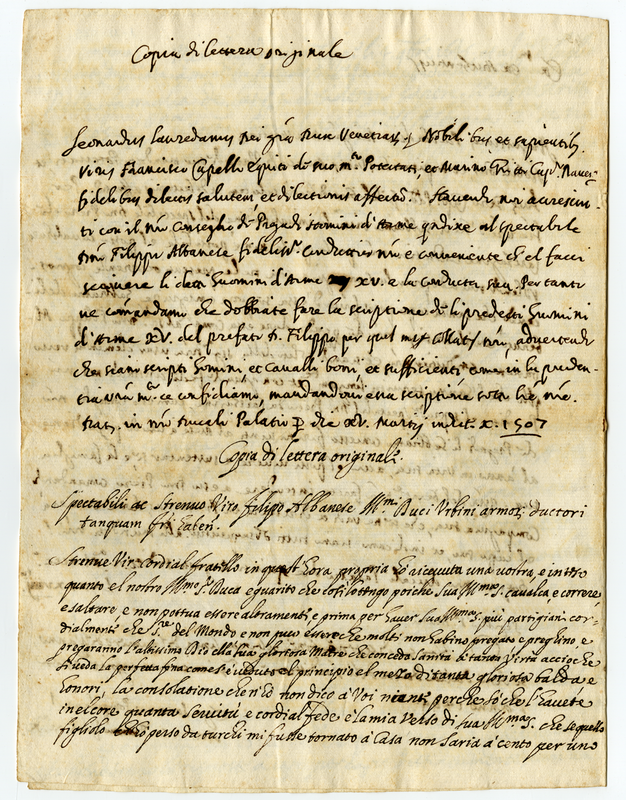 Copia di lettera originale
Leonardus Lauredanus Dei gr̃a Dux Venetiarũ Nobilibus et sapientib.
Viris Francisco Capelli Equiti de suo m.to Potestati, et Marino Gritti Cap.o
fidelibus dilectis salutem et dilectionis affectũ. Havendo noi accresciu-
ti con il nr̃o Conseglio di Pregadi homini d'Arme al spectabile
Filippo Albanese fideliss.o Conduttier nr̃o è conveniente ch'el facci
li detti Huomini d'Arme XV. e la condutta sua. Per tanto
ve comandamo che dobbiate fare la scriptione de li predetti Huomini
d'Arme XV. del prefato D. Filippo per quel advertendo
che siano scripti homini, et cavalli boni, et sufficienti come in la pruden-
tia confidiamo, mandandovi essa scriptione sotto
Dat. in nr̃o Ducali Palatio die XV. Martij indit. X. 1507
Copia di lettera original.e
Spectabili ac Strenuo Viro filipo Albanese Ill.mi Duci Urbini armor. ductori
tanquam fr̃i
Strenue Vir. cordial fratello in quest'hora propria hò ricevuta una vostra, e inteso
quanto el nostro Illmo S.r Duca è guarito che così lo tengo poiche Sua Illma S. cavalca, e correre
e saltare e non possua essere altramente, e prima per haver Sua Illma S. più partigiani cor-
dialmente che S.re del Mondo e non puo essere che molti non habino pregato e preghino e
pregaranno l'altissimo Dio e la sua gloriosa Madre che conceda sanità à tanta Virtù acciò che
si veda la perfetta fina come s'è veduto el principio el mezo di tanta gloriosa balda e
honori, la consolatione ch'en hò non dico à Voi niente perche sò che l'havete
in el core quanta Servitù e cordial fede e la mia verso di sua Illma S. che se quello
figliolo perso da turchi mi fusse tornato à Casa non saria à cento per uno